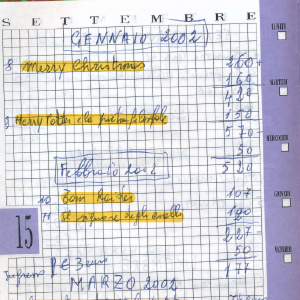 SETTEMBRE
GENNAIO 2002
LUNEDÌ
8 Merry Christmas 260+
160
MARTEDÌ
420
150
9 Harry Potter e la pietra filosofale 570-
MERCOLEDÌ
50
520
Febbraio 2002
10 Tom Raider 107
GIOVEDÌ
11 Il signore degli anelli 120
15
227
50
VENERDÌ
177
Ingresso € 3
MARZO 2002